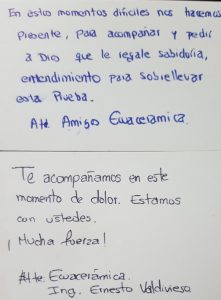 En estos momentos difíciles nos hacemos
presente, para acompañar y pedir
a Dios que le regale sabiduría,
entendimiento para sobrellevar
esta Prueba.
Atte Amigo Ecuacerámica.
Te acompañamos en este
momento de dolor. Estamos
con ustedes.
¡Mucha fuerza!
Atte. Ecuacerámica.
Ing. Ernesto Valdivieso